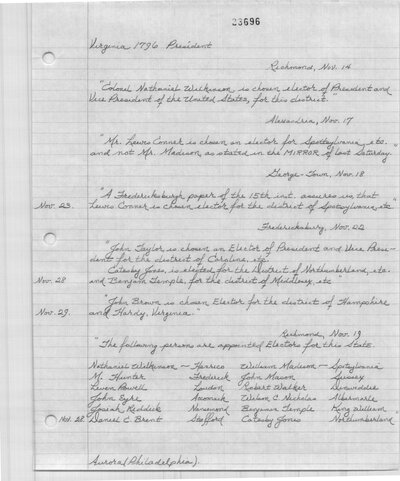 23696
Virginia 1796 President
Richmond, Nov. 14
"Colonel Nathaniel Wilkinson is chosen elector of President and
Vice President of the United States, for this district."
Alexandria, Nov. 17
"Mr. Lewis Conner is chosen an elector for Spottsylvania, etc.
and not Mr. Madison, as stated in the MIRROR of last Saturday."
George-Town, Nov. 18
"A Fredericksburgh paper of the 15th inst. assures us, that
Nov. 23. Lewis Conner is chosen elector for the district of Spotsylvania, etc."
Fredericksburg, Nov. 22
"John Taylor, is chosen an Elector of President and Vice Presi-
dent for the district of Caroline, etc.
Catesby Jones, is elected for the District of Northumberland, etc.
Nov. 28 and Benjamin Temple, for the district of Middlesex, etc."
"John Brown is chosen Elector for the district of Hampshire
Nov. 29. and Hardy, Virginia."
Richmond, Nov. 19
"The following persons are appointed Electors for this State.
Nathaniel Wilkinson — Henrico William Madison — Spotsylvania
M. Hunter Frederick John Mason Sussex
Leven Powell Loudon Robert Walker Dinwiddie
John Eyre Accomack Wilson C. Nicholas Albermarle
Josiah Reddick Nansemond Benjamin Temple King William
Nov. 28. Daniel C. Brent Stafford Catesby Jones Northumberland"
Aurora (Philadelphia).